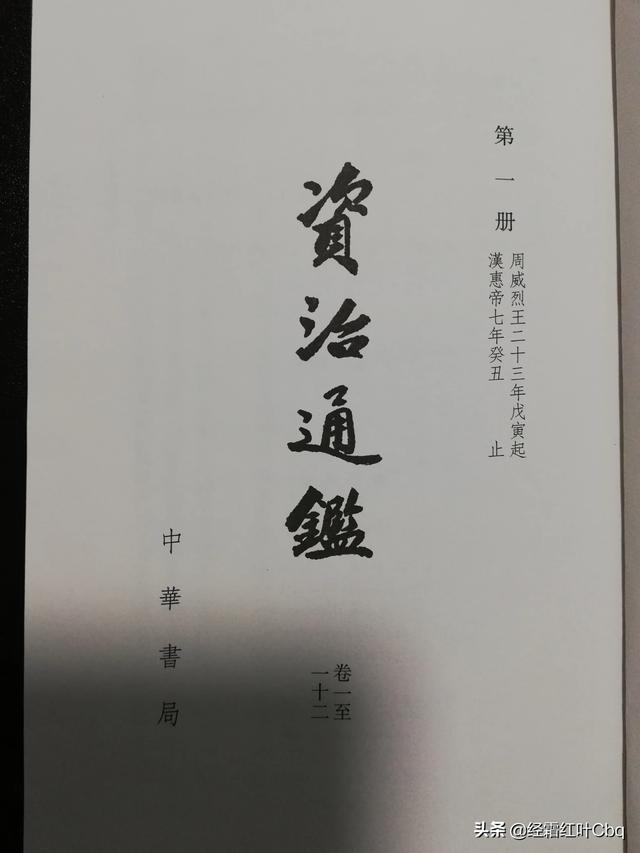 第一册
周威烈王二十三年戊寅起
漢惠帝七年癸丑 止
資治通鑑
卷一至
一十二
中華書局
头条 @经霜红叶Cbq